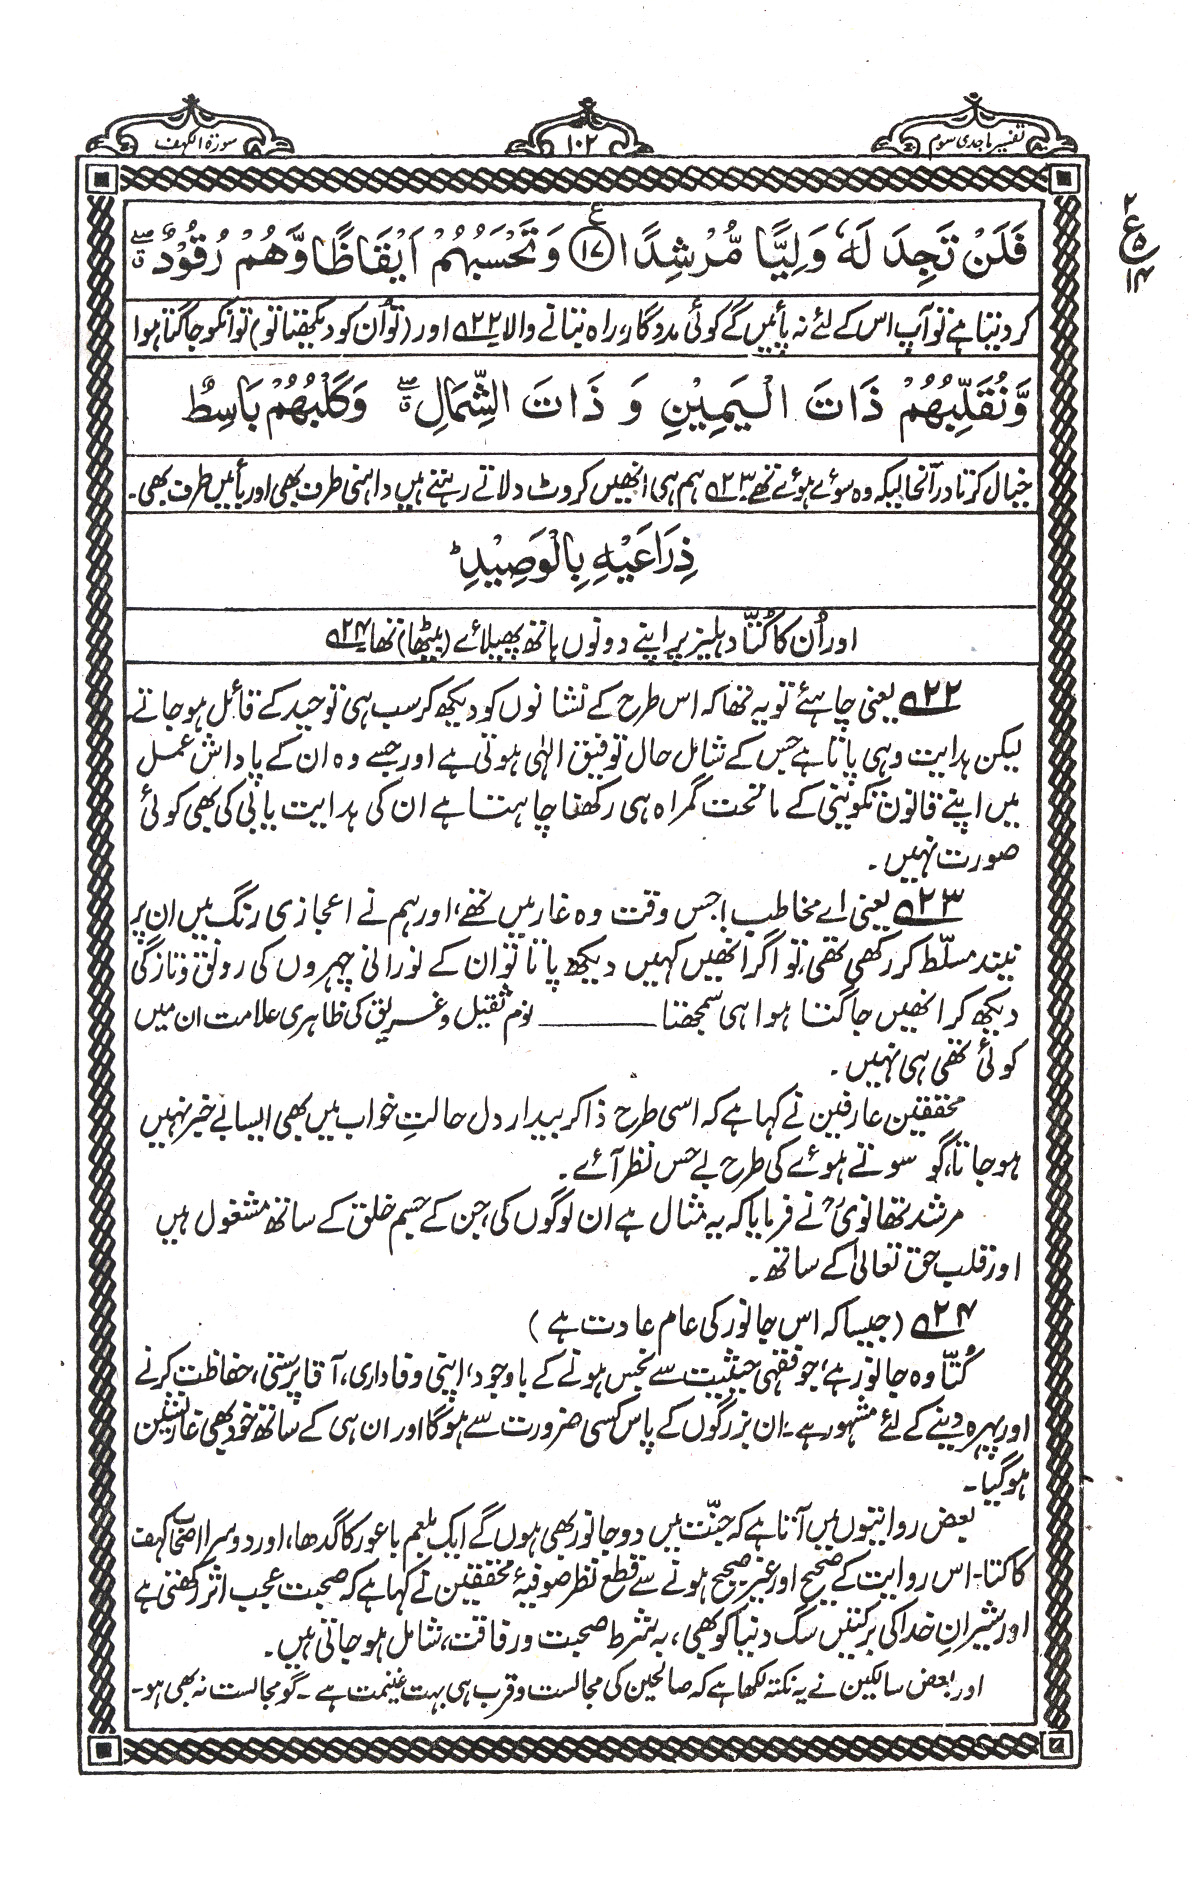 تفسیر ماجدی سوم
۱۰۲
سورۃ الکہف
فَلَنْ تَجِدَ لَهٗ وَلِيًّا مُّرْشِدًا ﴿۱۷﴾ وَتَحْسَبُهُمْ اَيْقَاظًا وَّهُمْ رُقُوْدٌ ۖۗ
ع
۲
ع
۵
۱۴
کر دیتا ہے تو آپ اس کے لئے نہ پائیں گے کوئی مددگار، راہ بتانے والا ۲۲؎ اور (تو اُن کو دیکھتا تو) تو انکو جاگتا ہوا
وَّنُقَلِّبُهُمْ ذَاتَ الْيَمِيْنِ وَ ذَاتَ الشِّمَالِ ۖۗ وَكَلْبُهُمْ بَاسِطٌ
خیال کرتا درآنحالیکہ وہ سوئے ہوئے تھے ۲۳؎ ہم ہی انھیں کروٹ دلاتے رہتے ہیں داہنی طرف بھی اور بائیں طرف بھی۔
ذِرَاعَيْهِ بِالْوَصِيْدِ ؕ
اور اُن کا کُتّا دہلیز پر اپنے دونوں ہاتھ پھیلائے (بیٹھا) تھا ۲۴؎
۲۲؎ یعنی چاہئے تو یہ تھا کہ اس طرح کے نشانوں کو دیکھ کر سب ہی توحید کے قائل ہو جاتے
لیکن ہدایت وہی پاتا ہے جس کے شامل حال توفیق الٰہی ہوتی ہے اور جسے وہ ان کے پاداش عمل
میں اپنے قانون تکوینی کے ماتحت گمراہ ہی رکھنا چاہتا ہے ان کی ہدایت یابی کی بھی کوئی
صورت نہیں۔
۲۳؎ یعنی اے مخاطب! جس وقت وہ غار میں تھے، اور ہم نے اعجازی رنگ میں ان پر
نیند مسلّط کر رکھی تھی، تو اگر انھیں کہیں دیکھ پاتا تو ان کے نورانی چہروں کی رونق و تازگی
دیکھ کر انھیں جاگتا ہوا ہی سمجھتا ــــــــــ نوم ثقیل و غریق کی ظاہری علامت ان میں
کوئی تھی ہی نہیں۔
محققین عارفین نے کہا ہے کہ اسی طرح ذاکر بیدار دل حالتِ خواب میں بھی ایسا بے خبر نہیں
ہو جاتا، گو سوتے ہوئے کی طرح بے حس نظر آئے۔
مرشد تھانویؒ نے فرمایا کہ یہ مثال ہے ان لوگوں کی، جن کے جسم خلق کے ساتھ مشغول ہیں
اور قلب حق تعالیٰ کے ساتھ۔
۲۴؎ (جیسا کہ اس جانور کی عام عادت ہے)
کُتّا وہ جانور ہے، جو فقہی حیثیت سے نجس ہونے کے باوجود، اپنی وفاداری، آقا پرستی، حفاظت کرنے
اور پہرہ دینے کے لئے مشہور ہے۔ ان بزرگوں کے پاس کسی ضرورت سے ہوگا اور ان ہی کے ساتھ خود بھی غار نشین
ہو گیا۔
بعض روایتوں میں آتا ہے کہ جنّت میں دو جانور بھی ہوں گے ایک بلعم باعور کا گدھا، اور دوسرا اصحاب کہف
کا کتا۔ اس روایت کے صحیح اور غیر صحیح ہونے سے قطع نظر صوفیۂ محققین نے کہا ہے کہ صحبت عجب اثر رکھتی ہے
اور شیرانِ خدا کی برکتیں سگ دنیا کو بھی، بہ شرط صحبت و رفاقت، شامل ہو جاتی ہیں۔
اور بعض سالکین نے یہ نکتہ لکھا ہے کہ صالحین کی مجالست و قرب ہی بہت غنیمت ہے۔ گو مجالست نہ بھی ہو۔